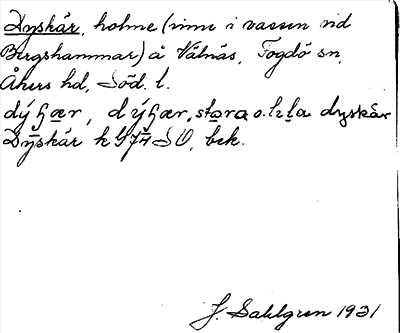 Dyskär, holme (inne i vassen vid
Bergshammar) å Valnäs, Fogdö sn,
Åkers hd, Söd. l.
stora o. l:la dyskär
Dyskär k 97 SO, bek.
J. Sahlgren 1931